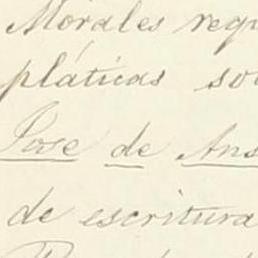 Morales requ
pláticas so
Jose de Ans
de escritura